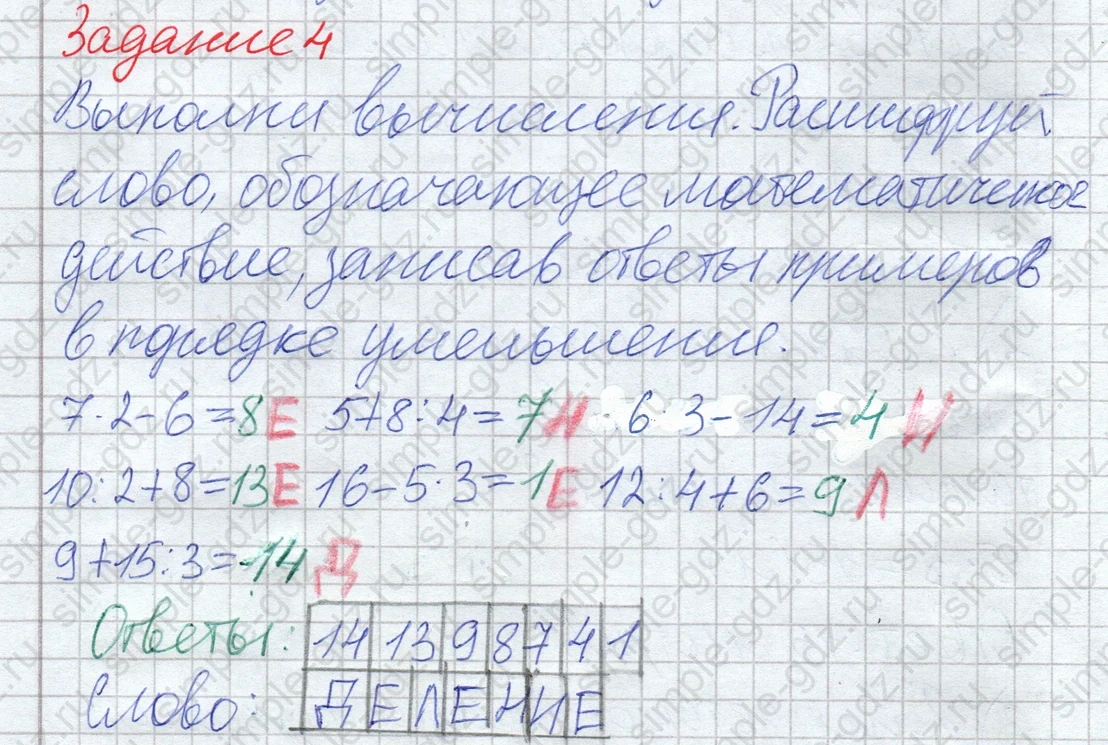 Задание 4
Выполни вычисления. Расшифруй
слово, обозначающее математическое
действие, записав ответы примеров
в порядке уменьшения.
7·2-6=8Е 5+8:4=7Н 6·3-14=4 И
10:2+8=13Е 16-5·3=1Е 12:4+6=9Л
9+15:3=14 Д
Ответы: 14 13 9 8 7 4 1
Слово: Д Е Л Е Н И Е